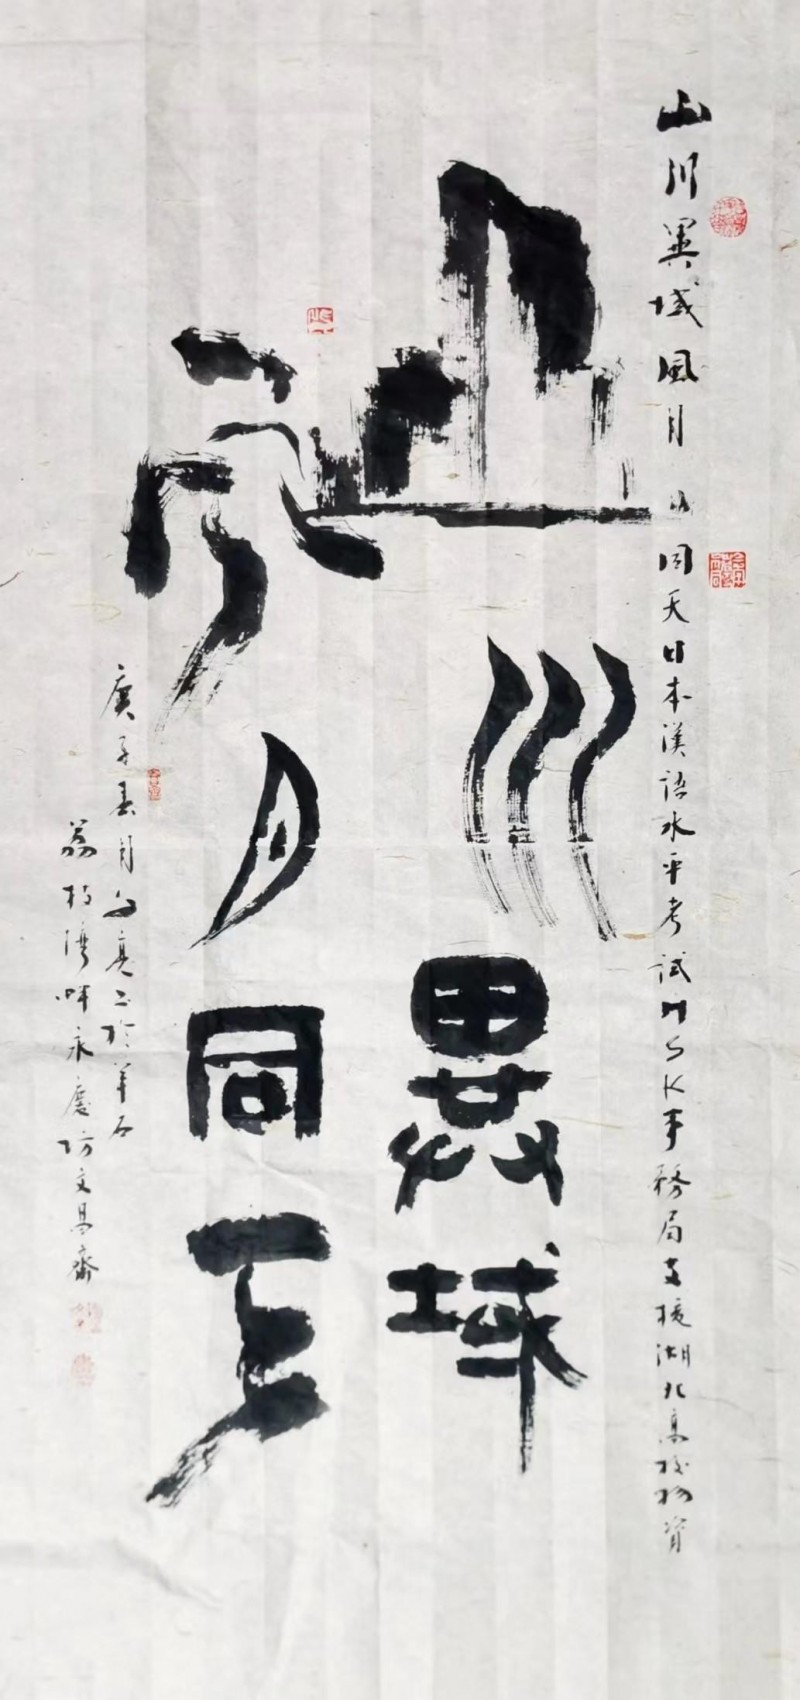 山川異域風月同天日本漢語水平考試HSK事務局支援湖北高校物資
山川異域
風月同天
庚子春月
荔枝灣畔永慶坊文昌齋